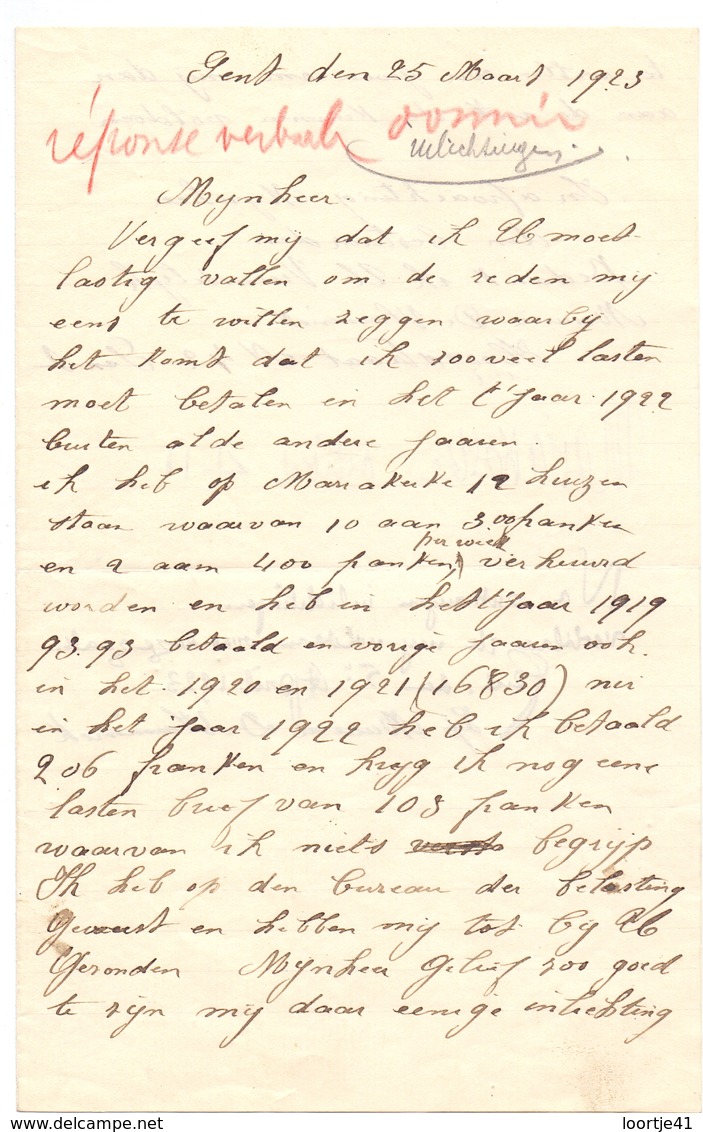 Gent den 25 Maart 1923
réponse verbale donnée
inlichtingen.
Mynheer.
Vergeef mij dat ik U moet
lastig vallen om de reden my
eens te willen zeggen waarby
het komt dat ik zooveel lasten
moet betalen in het t'Jaar 1922
buiten al de andere Jaaren.
ik heb op Mariakerke 12 huizen
staan waarvan 10 aan 3.00 franken
per week
en 2 aam 400 franken) verhuurd
worden en heb in het t'Jaar 1919
93.93 betaald en vorige Jaaren ook.
in het 1920 en 1921 (16830) nu
in het Jaar 1922 heb ik betaald
206 franken en kryg ik nog eene
lasten brief van 103 franken
waarvan ik niets begrijp
Ik heb op den bureau der belasting
Geweest en hebben mij tot bij U
Gezonden Mijnheer Gelief zoo goed
te zijn mij daar eenige inlichting
loortje41